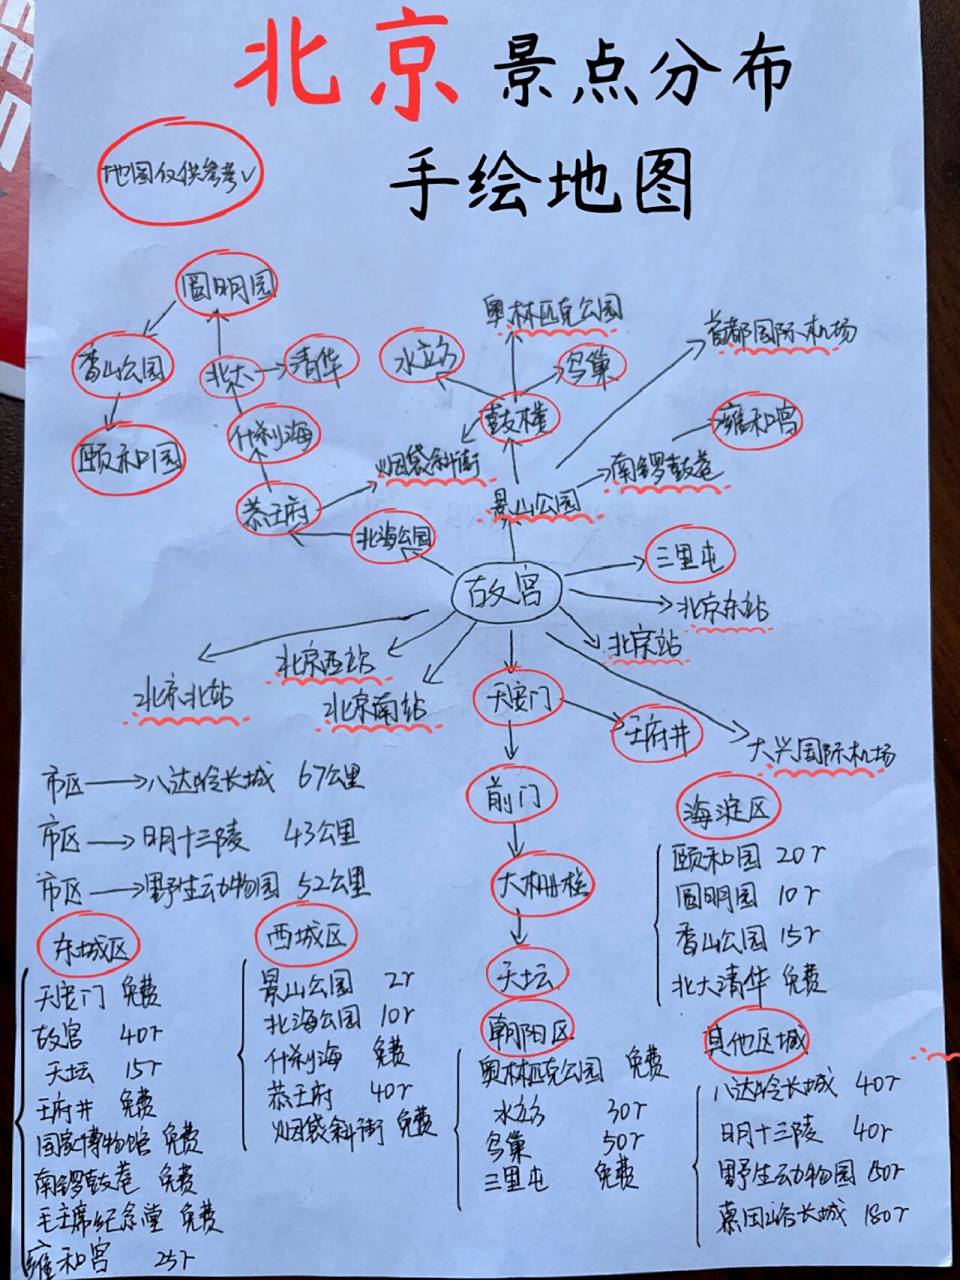 北京景点分布
手绘地图
地图仅供参考√
圆明园
奥林匹克公园
首都国际机场
香山公园
北大
清华
水立方
鸟巢
颐和园
什刹海
鼓楼
雍和宫
烟袋斜街
南锣鼓巷
恭王府
景山公园
北海公园
三里屯
故宫
北京东站
北京站
北京西站
北京北站
北京南站
天安门
王府井
大兴国际机场
市区→八达岭长城 67公里
前门
市区→明十三陵 43公里
市区→野生动物园 52公里
大栅栏
天坛
海淀区
颐和园 20r
圆明园 10r
香山公园 15r
北大清华 免费
东城区
天安门 免费
故宫 40r
天坛 15r
王府井 免费
国家博物馆 免费
南锣鼓巷 免费
毛主席纪念堂 免费
雍和宫 25r
西城区
景山公园 2r
北海公园 10r
什刹海 免费
恭王府 40r
烟袋斜街 免费
朝阳区
奥林匹克公园 免费
水立方 30r
鸟巢 50r
三里屯 免费
其他区域
八达岭长城 40r
明十三陵 40r
野生动物园 150r
慕田峪长城 180r